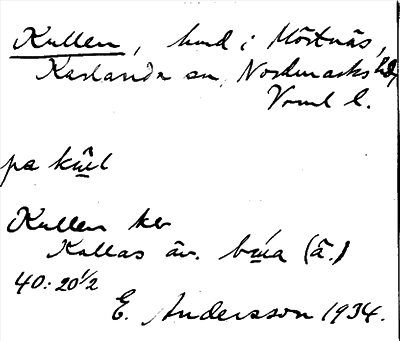 Kullen, hmd i Mörtnäs,
Karlanda sn, Nordmarks hd,
Vrml l.
pa kûl
Kullen kv
Kallas äv. búa (ä.)
40: 20 1/2
E. Andersson 1934.